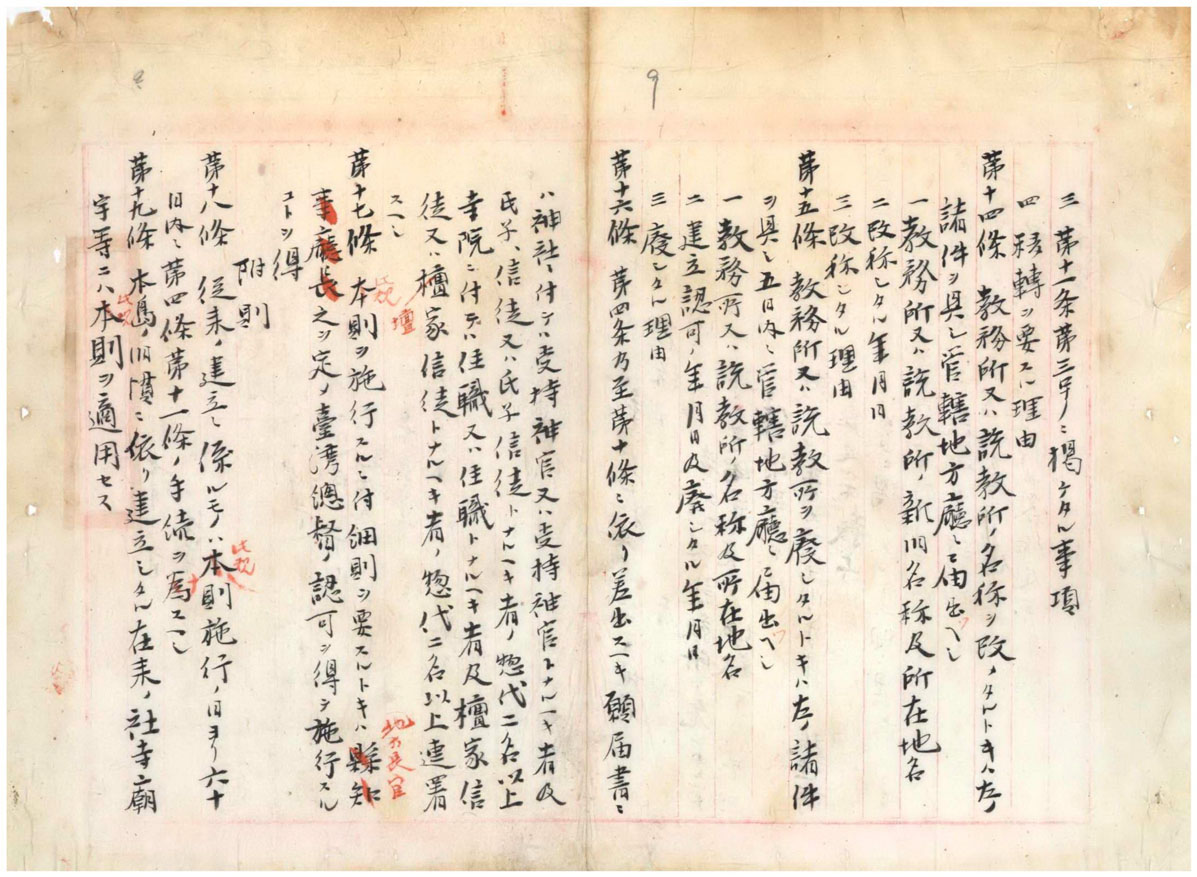 9
三 第十一条第三号ニ掲ケタル事項
四 移轉ヲ要スル理由
第十四條 教務所又ハ説教所ノ名称ヲ改メタルトキハ左ノ
諸件ヲ具シ管轄地方廳ニ届出ヘシ
一 教務所又ハ説教所ノ新旧名称及所在地名
二 改称シタル年月日
三 改称シタル理由
第十五條 教務所又ハ説教所ヲ廢シタルトキハ左ノ諸件
ヲ具シ五日内ニ管轄地方廳ニ届出ヘシ
一 教務所又ハ説教所ノ名称及所在地名
二 建立認可ノ年月日及廢シタル年月日
三 廢シタル理由
第十六條 第四条乃至第十條ニ依リ差出スヘキ願届書ニ
ハ神社ニ付テハ受持神官又ハ受持神官トナルヘキ者及
氏子、信徒又ハ氏子信徒トナルヘキ者ノ惣代二名以上
寺院ニ付テハ住職又ハ住職トナルヘキ者及檀家信
徒又ハ檀家信徒トナルヘキ者ノ惣代二名以上連署
スヘシ
壇
第十七條 本則ヲ施行スルニ付細則ヲ要スルトキハ縣知
地方長官
事廳長之ヲ定メ臺湾總督ノ認可ヲ得テ施行スル
コトヲ得
附則
第十八條 従来ノ建立ニ係ルモノハ本則施行ノ日ヨリ六十
日内ニ第四條第十一條ノ手続ヲ為スヘシ
第十九條 本島ノ旧慣ニ依リ建立シタル在来ノ社寺廟
宇等ニハ本則ヲ適用セス